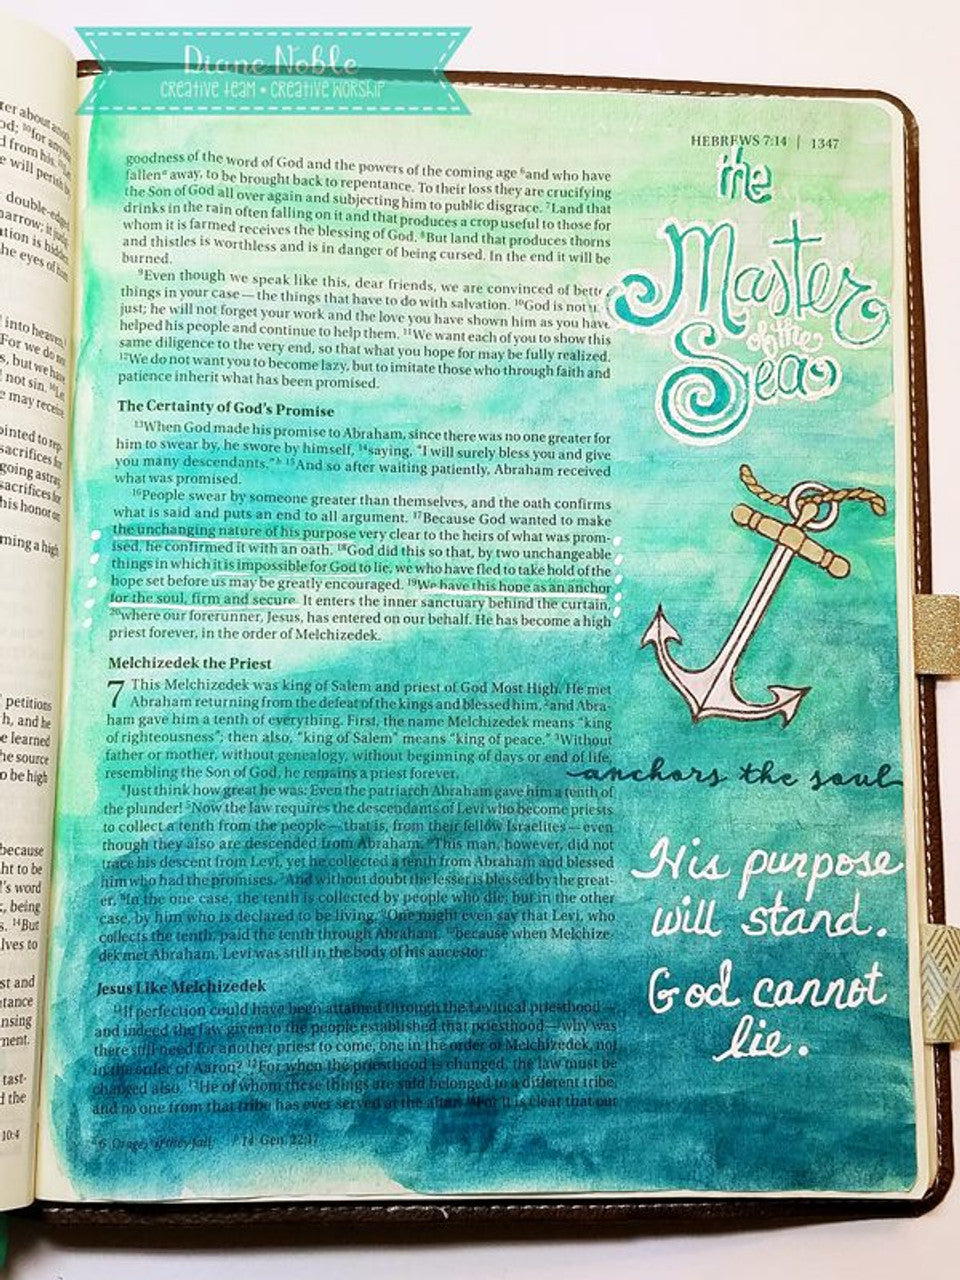 Diane Noble
CREATIVE TEAM • CREATIVE WORSHIP
HEBREWS 7:14 | 1347
goodness of the word of God and the powers of the coming age ⁶and who have
fallenᵃ away, to be brought back to repentance. To their loss they are crucifying
the Son of God all over again and subjecting him to public disgrace. ⁷Land that
drinks in the rain often falling on it and that produces a crop useful to those for
whom it is farmed receives the blessing of God. ⁸But land that produces thorns
and thistles is worthless and is in danger of being cursed. In the end it will be
burned.
⁹Even though we speak like this, dear friends, we are convinced of bette
things in your case—the things that have to do with salvation. ¹⁰God is not u
just; he will not forget your work and the love you have shown him as you have
helped his people and continue to help them. ¹¹We want each of you to show this
same diligence to the very end, so that what you hope for may be fully realized.
¹²We do not want you to become lazy, but to imitate those who through faith and
patience inherit what has been promised.
The Certainty of God's Promise
¹³When God made his promise to Abraham, since there was no one greater for
him to swear by, he swore by himself, ¹⁴saying, "I will surely bless you and give
you many descendants."ᵇ ¹⁵And so after waiting patiently, Abraham received
what was promised.
¹⁶People swear by someone greater than themselves, and the oath confirms
what is said and puts an end to all argument. ¹⁷Because God wanted to make
the unchanging nature of his purpose very clear to the heirs of what was prom-
ised, he confirmed it with an oath. ¹⁸God did this so that, by two unchangeable
things in which it is impossible for God to lie, we who have fled to take hold of the
hope set before us may be greatly encouraged. ¹⁹We have this hope as an anchor
for the soul, firm and secure. It enters the inner sanctuary behind the curtain,
²⁰where our forerunner, Jesus, has entered on our behalf. He has become a high
priest forever, in the order of Melchizedek.
Melchizedek the Priest
7 This Melchizedek was king of Salem and priest of God Most High. He met
Abraham returning from the defeat of the kings and blessed him, ²and Abra-
ham gave him a tenth of everything. First, the name Melchizedek means "king
of righteousness"; then also, "king of Salem" means "king of peace." ³Without
father or mother, without genealogy, without beginning of days or end of life,
resembling the Son of God, he remains a priest forever.
⁴Just think how great he was: Even the patriarch Abraham gave him a tenth of
the plunder! ⁵Now the law requires the descendants of Levi who become priests
to collect a tenth from the people—that is, from their fellow Israelites—even
though they also are descended from Abraham. ⁶This man, however, did not
trace his descent from Levi, yet he collected a tenth from Abraham and blessed
him who had the promises. ⁷And without doubt the lesser is blessed by the great-
er. ⁸In the one case, the tenth is collected by people who die; but in the other
case, by him who is declared to be living. ⁹One might even say that Levi, who
collects the tenth, paid the tenth through Abraham, ¹⁰because when Melchize-
dek met Abraham, Levi was still in the body of his ancestor.
Jesus Like Melchizedek
¹¹If perfection could have been attained through the Levitical priesthood—
and indeed the law given to the people established that priesthood—why was
there still need for another priest to come, one in the order of Melchizedek, not
in the order of Aaron? ¹²For when the priesthood is changed, the law must be
changed also. ¹³He of whom these things are said belonged to a different tribe,
and no one from that tribe has ever served at the altar. ¹⁴For it is clear that our
14 Gen. 22:17
the
Master
of the
Sea
anchors the soul
His purpose
will stand.
God cannot
lie.